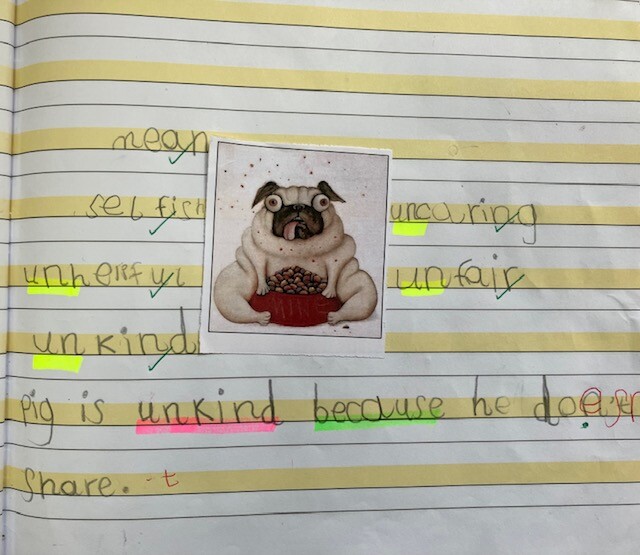 mean
selfish uncaring
unhelpful unfair
unkind
pig is unkind because he doesn
share. t